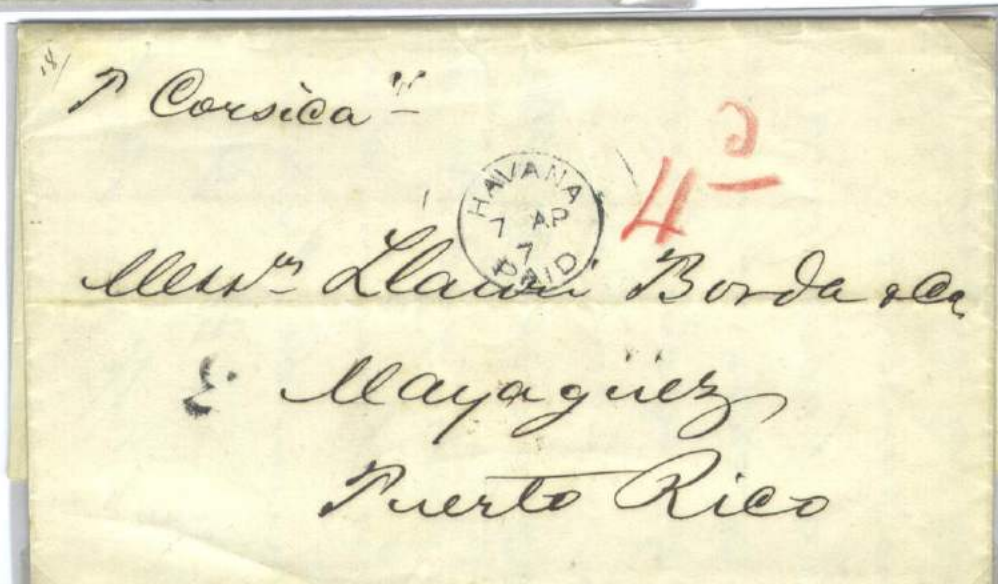 18/
P Corsica
4d
HAVANA
7 AP
7
PAID
Messrs Borda & Ca
Mayagüez
Puerto Rico